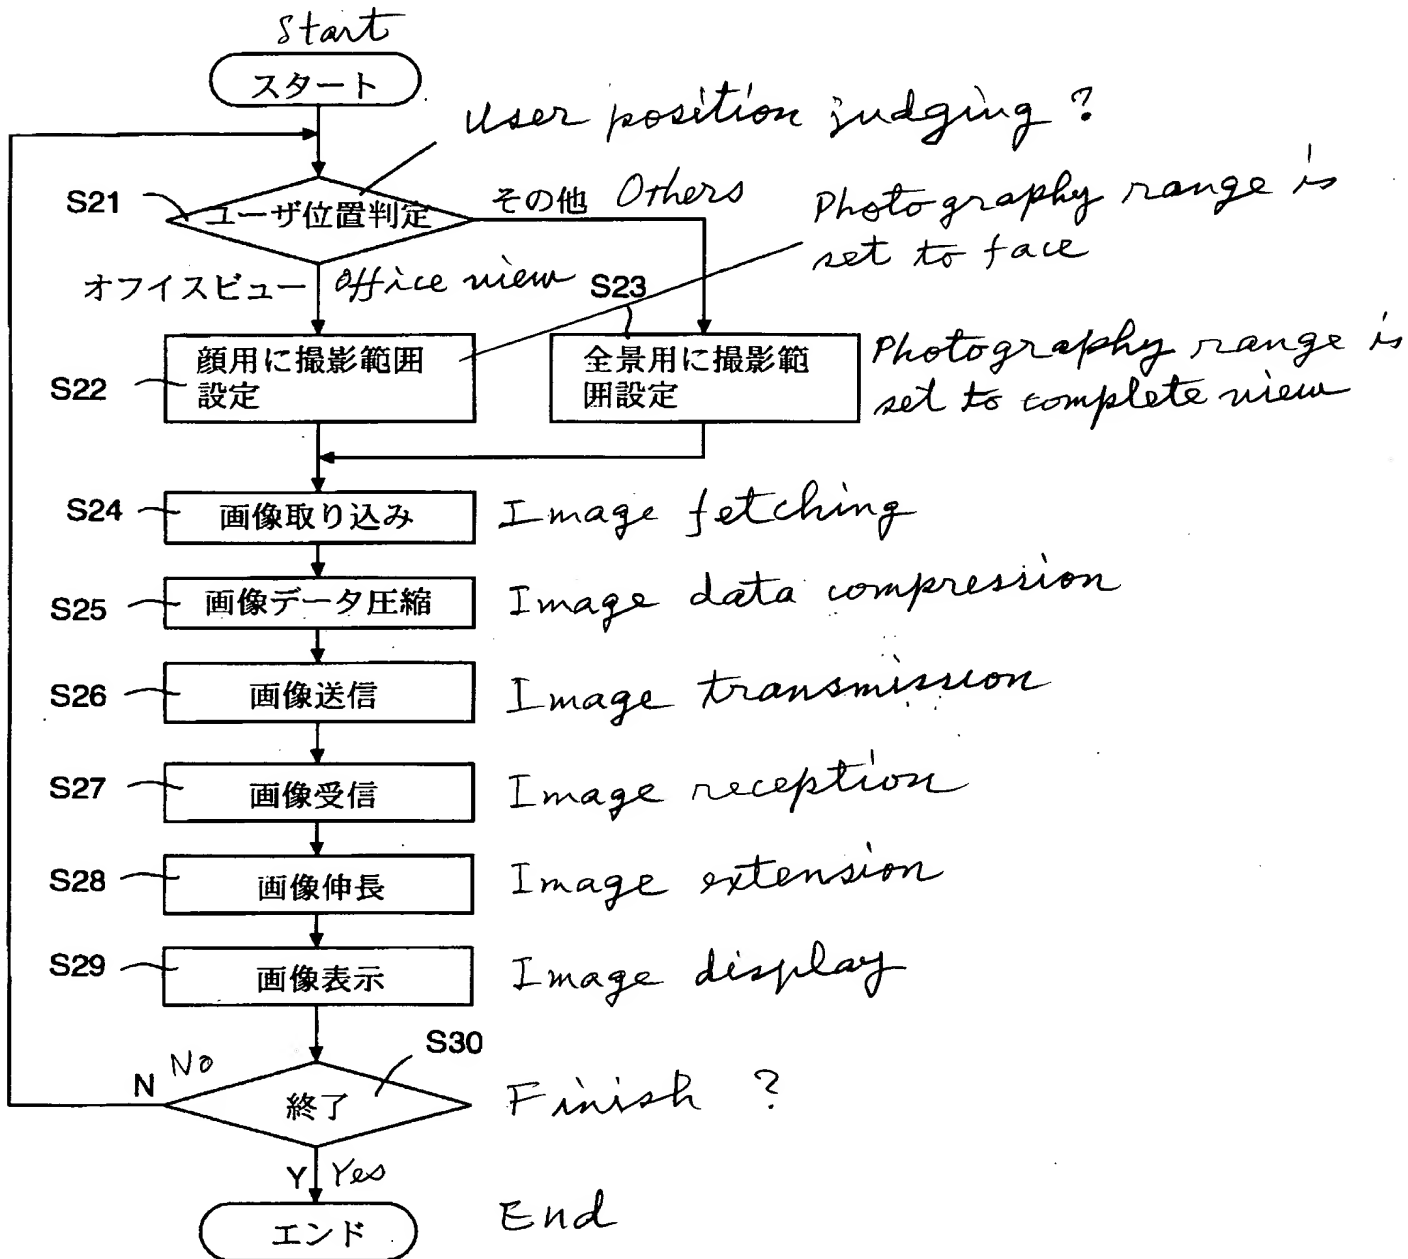 Start
スタート
User position judging ?
S21
ユーザ位置判定
その他 Others
Photography range is
set to face
オフイスビュー Office view
S23
S22
顔用に撮影範囲
設定
全景用に撮影範
囲設定
Photography range is
set to complete view
S24 画像取り込み Image fetching
S25 画像データ圧縮 Image data compression
S26 画像送信 Image transmission
S27 画像受信 Image reception
S28 画像伸長 Image extension
S29 画像表示 Image display
S30
N No
終了 Finish ?
Y Yes
エンド End